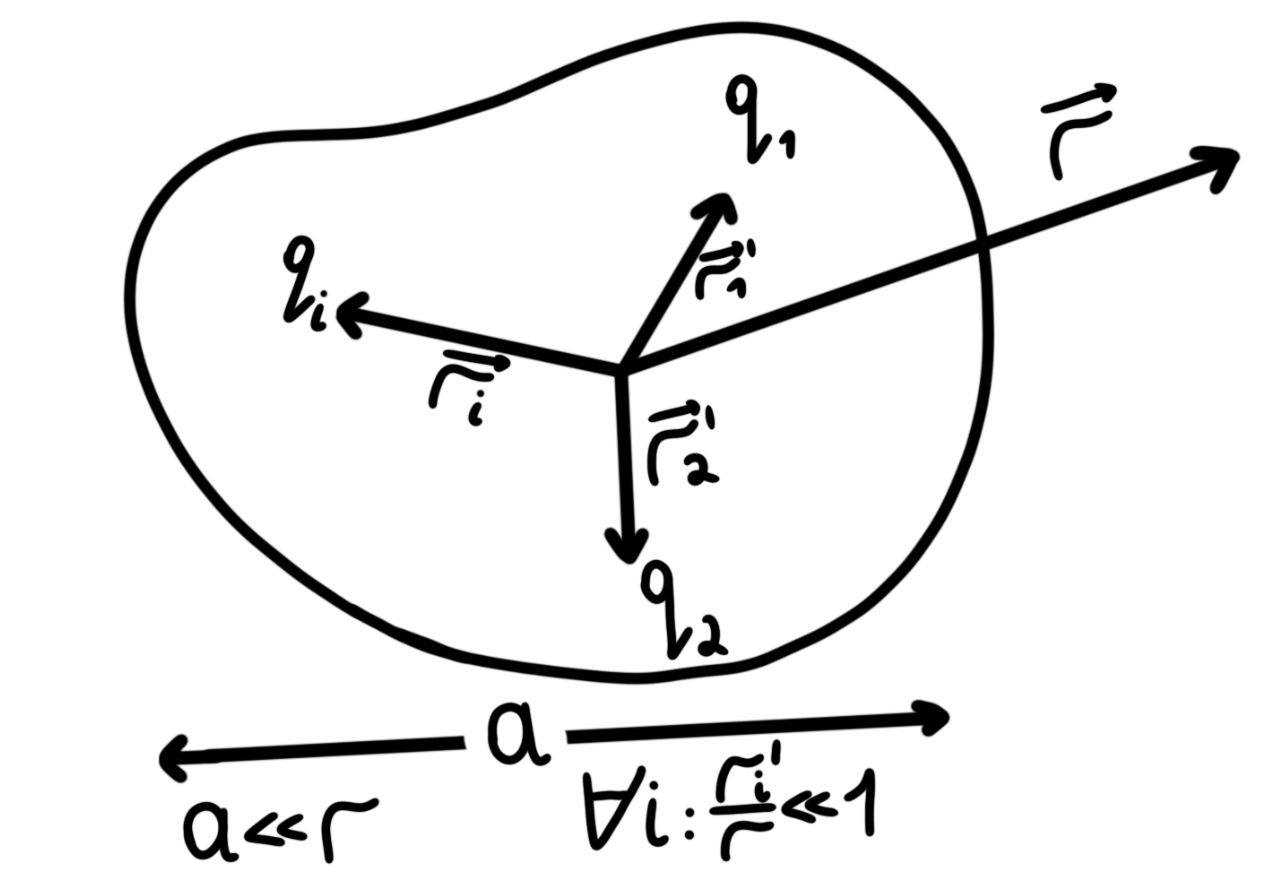 q₁
r⃗
qᵢ
r⃗₁'
r⃗ᵢ
r⃗₂'
q₂
a
a≪r
∀i: rᵢ'/r ≪1